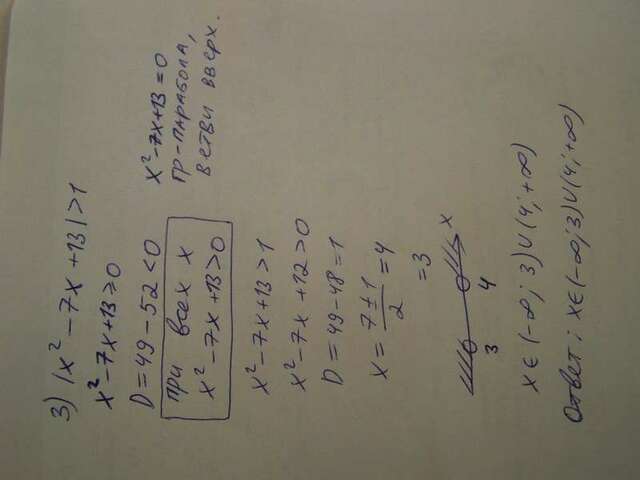 3) |x² - 7x + 13| > 1
x² - 7x + 13 > 0
D = 49 - 52 < 0
при всех x
x² - 7x + 13 > 0
x² - 7x + 13 = 0
гр-парабола,
ветви вверх.
x² - 7x + 13 > 1
x² - 7x + 12 > 0
D = 49 - 48 = 1
x = (7 ± 1)/2 = 4
= 3
3 4 x
x ∈ (-∞; 3) ∪ (4; +∞)
Ответ: x ∈ (-∞; 3) ∪ (4; +∞)